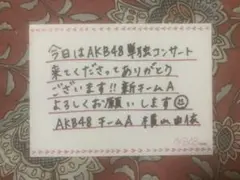 今日はAKB48単独コンサート
来てくださってありがとう
ございます!!新チームA
よろしくお願いします
AKB48 チームA 横山由依